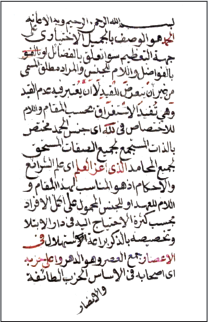 بسم الله الرحمن الرحيم وبه الاعانة
الحمد هو الوصف بالجميل الاختياري على
جهة التعظيم سواء تعلق بالفضائل او بالفواضل
واللام للجنس والمراد مطلق المسمى
من غير ان يتعرض للقيد لا ان يعتبر قيد عدم القيد
وهي تفيد الاستغراق بحسب المقام واللام
للاختصاص في لله اى جنس الحمد مختص
بالذات المستجمع لجميع الصفات المستحق
لجميع المحامد الذى اعز العلم اى علم الشرايع
والاحكام اذ هو المناسب لهذا المقام و
اللام للعهد او للجنس المحمول على اكمل الافراد
بحسب كثرة الاحتياج اليه في دار الابتلا
وتخصيصه بالذكر براعة الاستهلال في
الاعصار جمع العصر وهو الدهر واعلى حزبه
اى اصحابه في الاساس الحزب الطائفة
والانصار